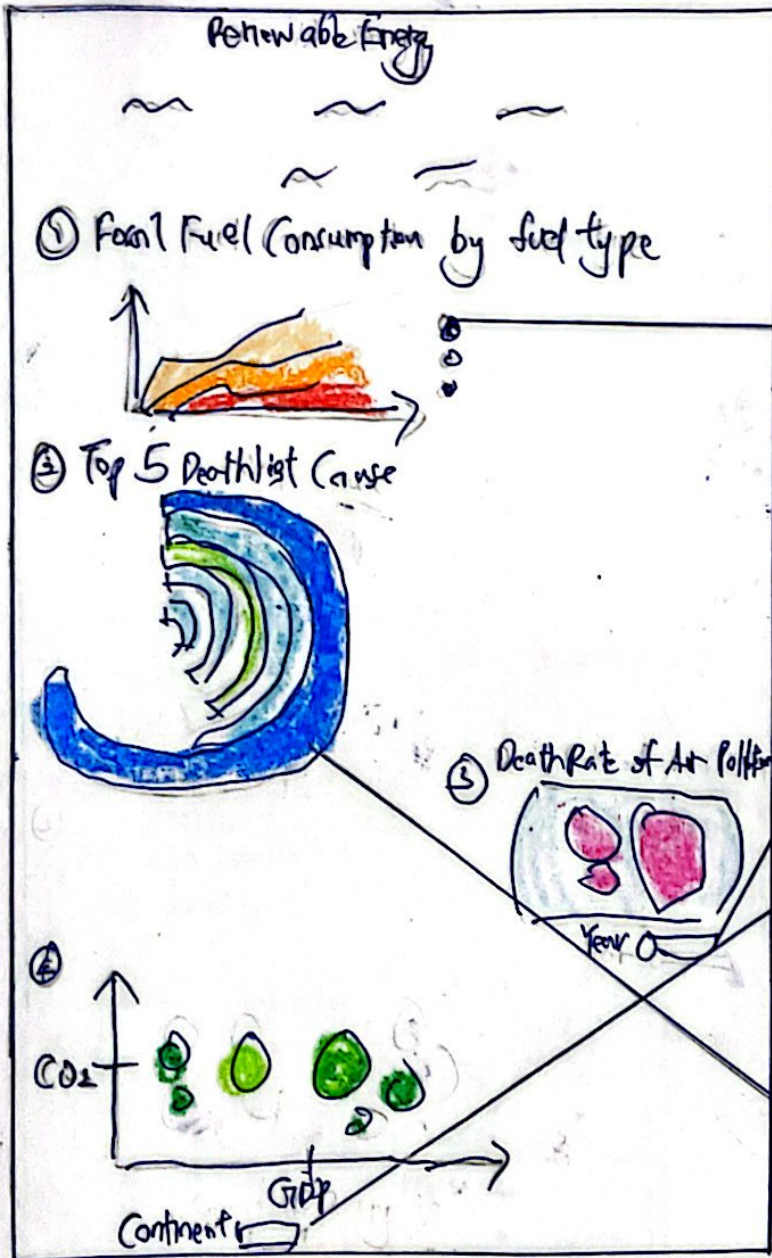 Renewable Energy
① Fossil Fuel Consumption by fuel type
② Top 5 Deathlist Cause
③ Death Rate of Air Pollution
Year
④
CO2
GDP
Continent